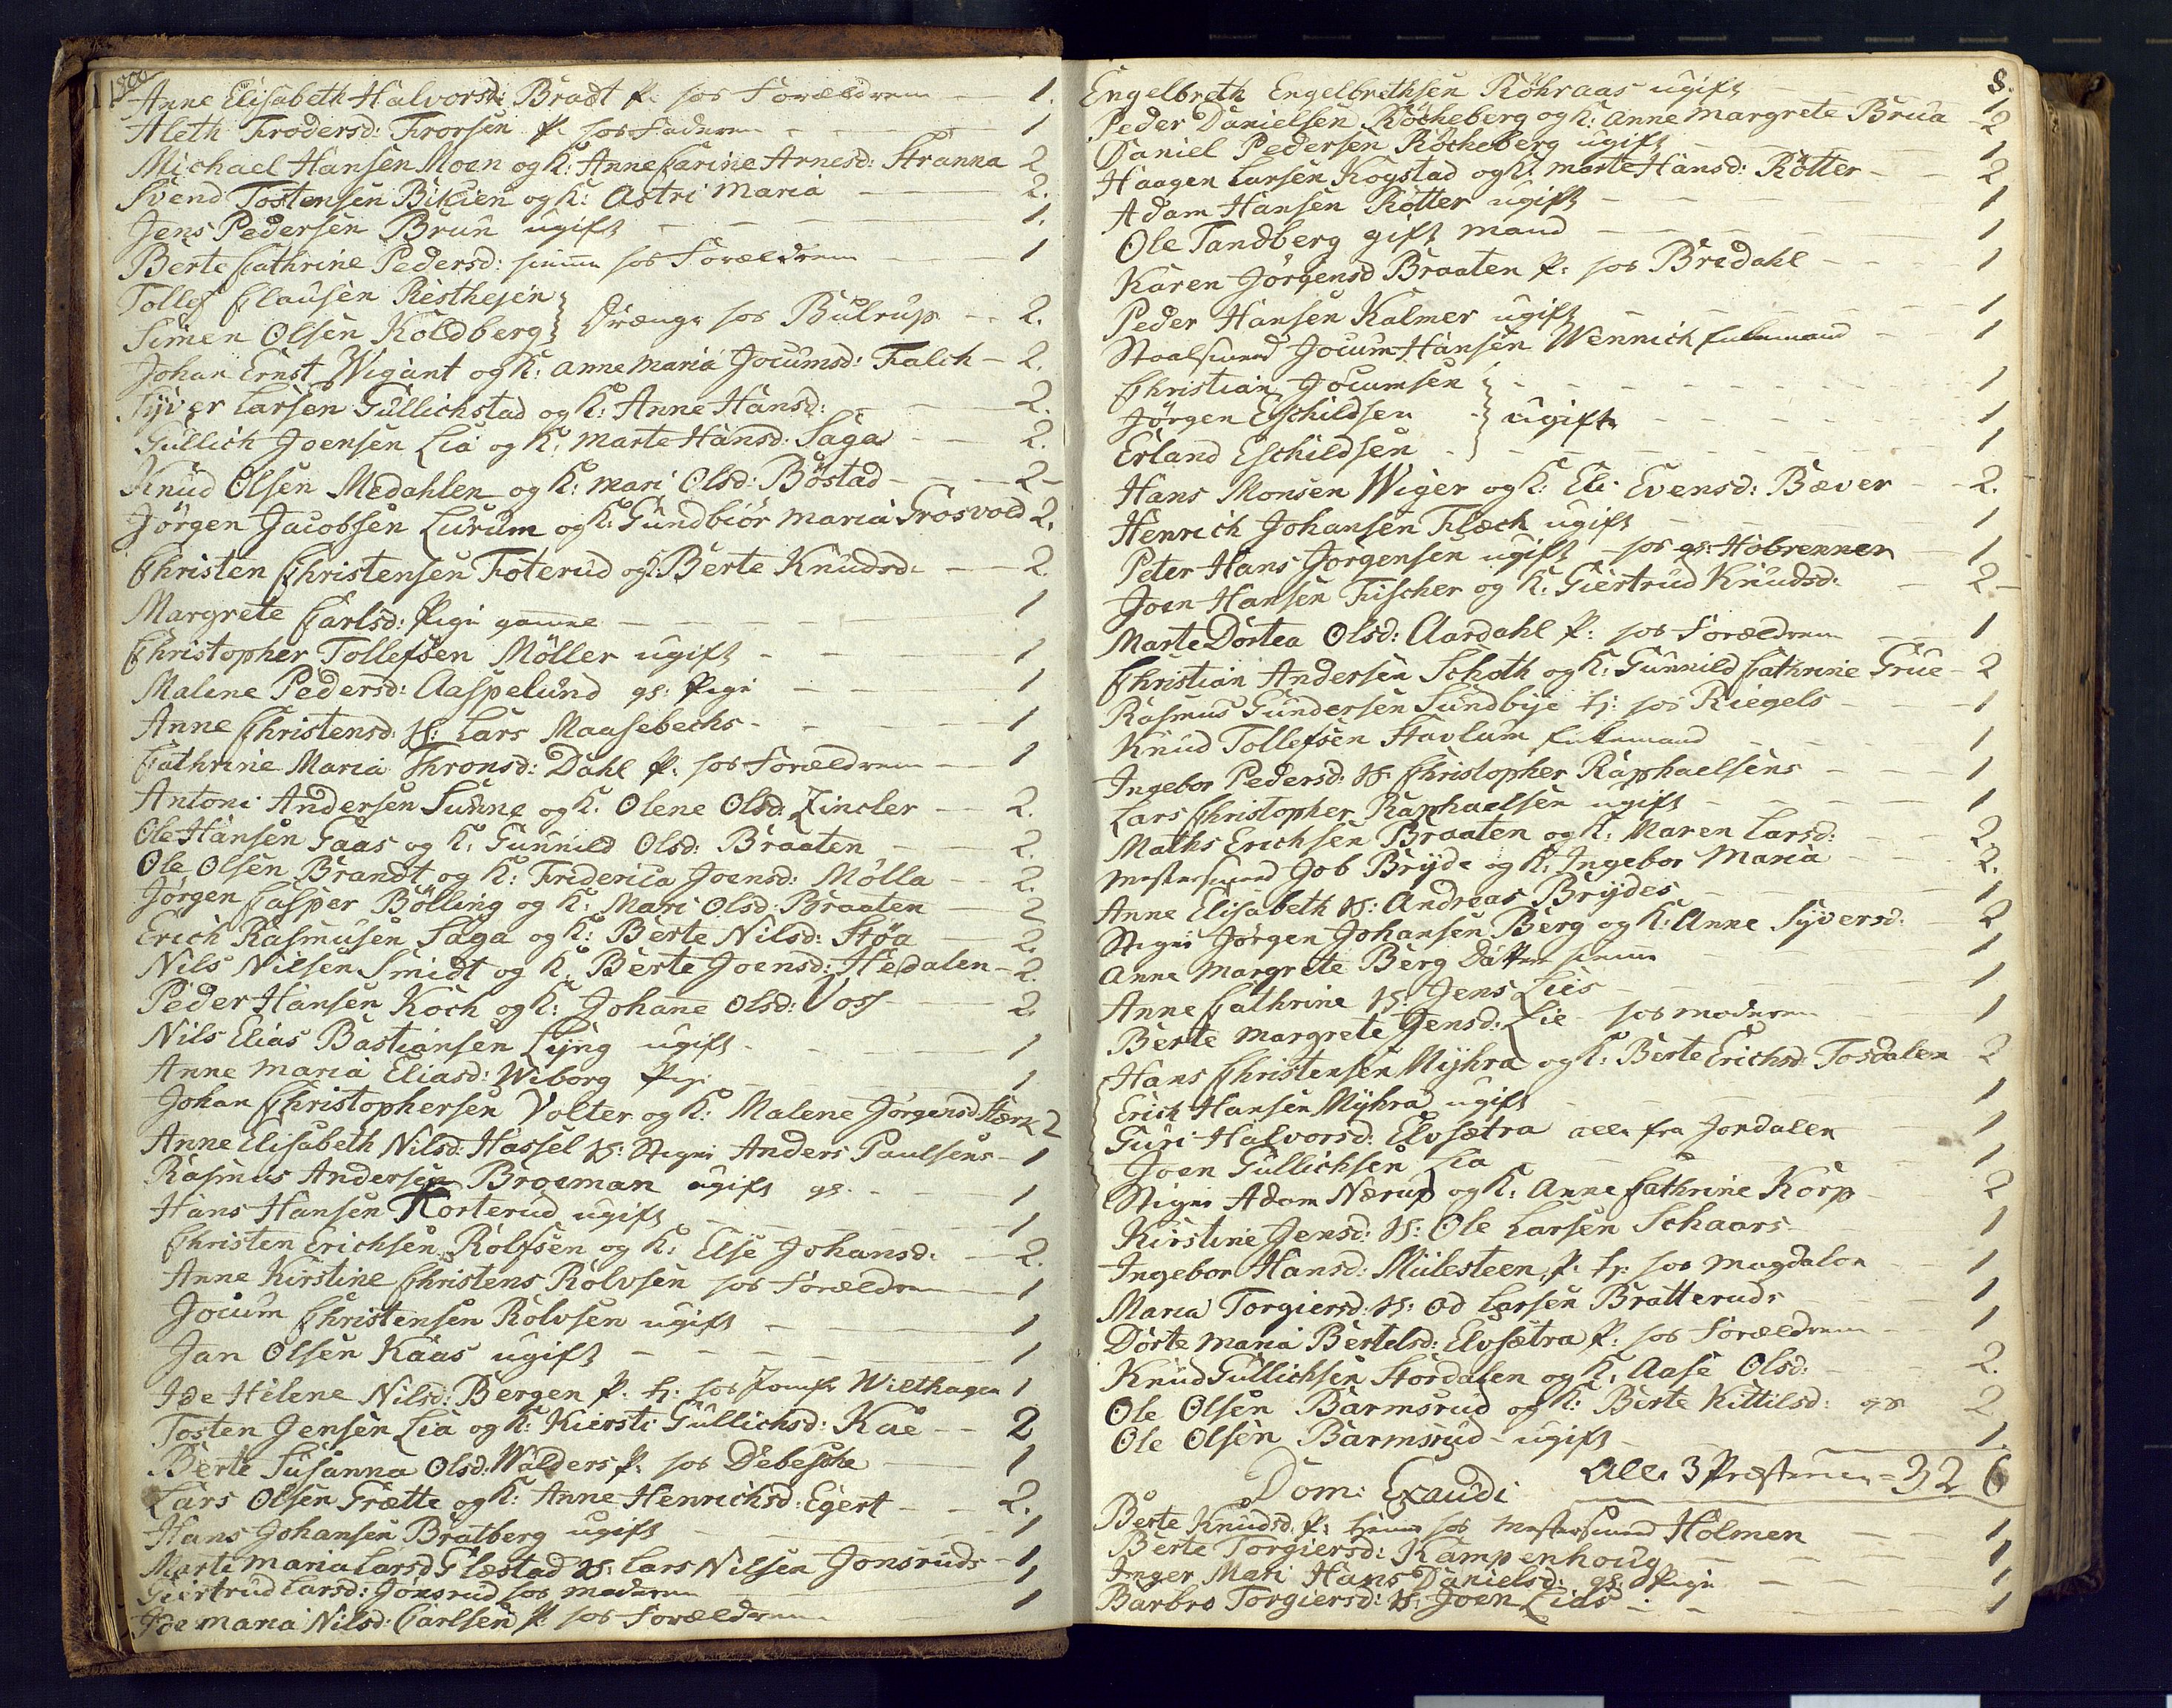 1800
Anne Elisabeth Halvorsd: Bradt P: hos Forældrene — 1.
Aleth Frodersd: Frorsen P. hos Faderen — 1
Michael Hansen Moen og K: Anne Carine Arnesd: Stranna 2
Svend Tostensen Bikien og K: Astri Maria — 2.
Jens Pedersen Brun ugift — 1.
Berte Cathrine Pedersd: hiemme hos Forældrene 1
Tollef Clausen Risthejen
Simen Olsen Koldberg } Drænge hos Bulrup — 2.
Johan Ernst Wigant og K: Anne Maria Jocumsd: Falch — 2.
Syver Larsen Gullichstad og K: Anne Hansd: — 2.
Gullich Joensen Lia og K: Marte Hansd: Saga — 2.
Knud Olsen Medahlen og K: Mari Olsd: Böstad — 2 —
Jörgen Jacobsen Lurum og K: Gundbiör Maria Frosvold 2.
Christen Christensen Foterud og K: Berte Knudsd: — 2.
Margrete Carlsd: Pige gamme — 1
Christopher Tollefsen Möller ugift — 1
Malene Pedersd: Aaspelund gl: Pige — 1
Anne Christensd: K: Lars Maasebechs — 1
Cathrine Maria Thronsd: Dahl P. hos Forældrene — 1
Antoni Andersen Sunne og K: Olene Olsd: Zincler — 2.
Ole Hansen Gaas og K: Gunnild Olsd: Braaten — 2.
Ole Olsen Brandt og K: Friderica Joensd: Mölla — 2.
Jörgen Casper Bölling og K: Mari Olsd: Braaten — 2
Erich Rasmusen Saga og K: Berte Nilsd: Stöa — 2.
Nils Nilsen Smidt og K: Berte Joensd: Hedalen — 2.
Peder Hansen Koch og K: Johanne Olsd: Voss — 2.
Nils Elias Bastiansen Lyng ugift — 1
Anne Maria Eliasd: Wiborg Pige — 1
Johan Christophersen Volter og K: Malene Jörgensd Stærk 2
Anne Elisabeth Nilsd: Hassel K: Stiger Anders Paulsens — 1
Rasmus Andersen Broeman ugift gl. — 1
Hans Hansen Korterud ugift — 1
Christen Erichsen Rolfsen og K: Else Johansd: — 2.
Anne Kirstine Christens Rolvsen hos Forældre — 1
Jocum Christensen Rolvsen ugift — 1
Jan Olsen Kaas ugift — 1
Ide Helene Nilsd: Bergen P. tj: hos Jomfr Wilthagen 1
Tosten Jensen Lia og K: Kiersti Gullichsd: Kae — 2
Berte Susanna Olsd: Walders P: hos Debesche 1
Lars Olsen Grætte og K: Anne Henrichsd: Egert — 2.
Hans Johansen Bratberg ugift — 1
Marte Maria Larsd Glæstad K: Lars Nilsen Jonsruds — 1
Giertrud Larsd: Jonsrud hos Moderen 1
Ide Maria Nilsd: Carlsen P. hos Forældrene 1
8.
Engelbreth Engelbrethsen Röhraas ugift — 1
Peder Danielsen Röcheberg og K: Anne Margrete Brua — 2
Daniel Pedersen Röcheberg ugift — 1
Haagen Larsen Kogstad og K: Marte Hansd: Rötter — 2
Adam Hansen Rötter ugift — 1
Ole Tandberg gift Mand — 1
Karen Jörgensd Braaten P: hos Bredahl — 1
Peder Hansen Kalmer ugift — 1
Staalsmed Jocum Hansen Wennich Enkemand — 1
Christian Jocumsen — 1
Jörgen Eschildsen } ugifte — 1
Erland Eschildsen — 1
Hans Monsen Wiger og K: Eli Evensd: Bæver — 2.
Henrich Johansen Flæch ugift — 1
Peter Hans Jorgensen ugift — hos gl: Hobrenner — 1
Joen Hansen Fischer og K: Giertrud Knudsd: — 2 —
Marte Dortea Olsd: Aardahl P: hos Forældrene 1
Christian Andersen Schoth og K: Gunnild Cathrine Grue — 2
Rasmus Gundersen Sundbye tj: hos Riegels — 1
Knud Tollefsen Stavlum Enkemand — 1
Ingebor Pedersd: K: Christopher Raphaelsens — 1
Lars Christopher Raphaelsen ugift — 1
Mathis Erichsen Braaten og K: Maren Larsd: — 2
Mestersmed Job Bryde og K: Ingebor Maria — 2.
Anne Elisabeth K: Andreas Brydes — 1
Stiger Jörgen Johansen Berg og K: Anne Syversd: 2
Anne Margrete Berg Datter hiemme — 1
Anne Cathrine K: Jens Lies — 1
Berte Margrete Jensd: Lie hos Moderen — 1
Hans Christensen Myhra og K: Berte Erichsd: Tosdalen 2
Erich Hansen Myhra ugift — 1
Guri Halvorsd: Elvsætra alle fra Jordalen 1
Joen Gullichsen Lia — 1
Stiger Adam Nærup og K: Anne Cathrine Korp — 2
Kirstine Jensd: K: Ole Larsen Schaars 1
Ingebor Hansd: Mülesteen P. tj: hos Magdalon — 1
Maria Torgiersd: K: Od Larsen Bratteruds — 1
Dorte Maria Bertelsd: Elvsætra P: hos Forældrene 1
Knud Gullichsen Stordalen og K: Aase Olsd: 2.
Ole Olsen Barmsrud og K: Berte Kittilsd: gl 2
Ole Olsen Barmsrud — ugift 1
Dom: Exaudi Alle 3 Præsterne = 326
Berte Knudsd. P: hos Mestersmed Holmen — 1
Berte Torgiersd: Kampenhoug — 1
Inger Mari Hans Danielsd: gl: Pige — 1
Barbro Torgiersd: K: Joen Lias — 1